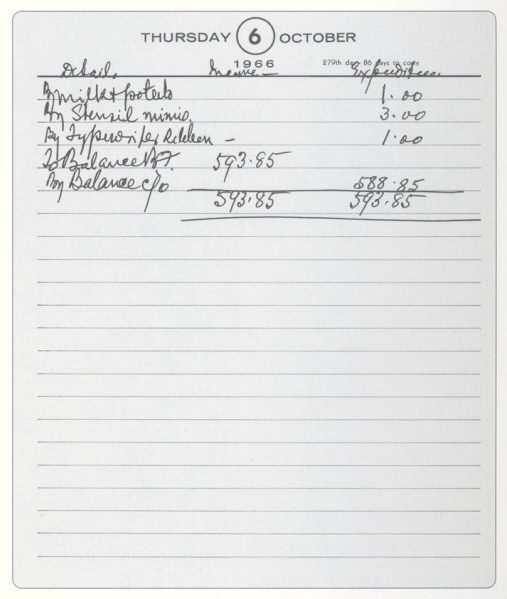 THURSDAY 6 OCTOBER
1966 279th day 86 days to come
Details Income Expenditure
By milk & potato 1.00
By Stensil mimio 3.00
By Typewriter 1.00
To Balance B/F. 593.85
By Balance c/o 588.85
593.85 593.85